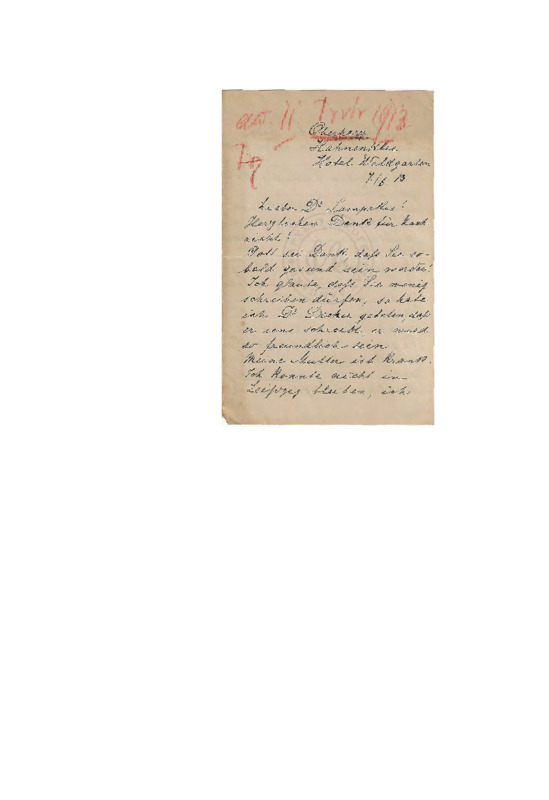 11 Juni 1913
Oberhof
Hotel Waldgarten
7/6 13
Lieber Dr Lamprecht!
Herzlichen Dank für Nach
richt!
Gott sei Dank daß Sie so-
bald gesund sein werden!
Ich glaube, daß Sie wenig
schreiben dürfen, so habe
ich Dr gebeten daß
er uns schreibt. er wird
so freundlich sein.
Meine Mutter ist krank.
Ich konnte nicht in
Leipzig bleiben, ich